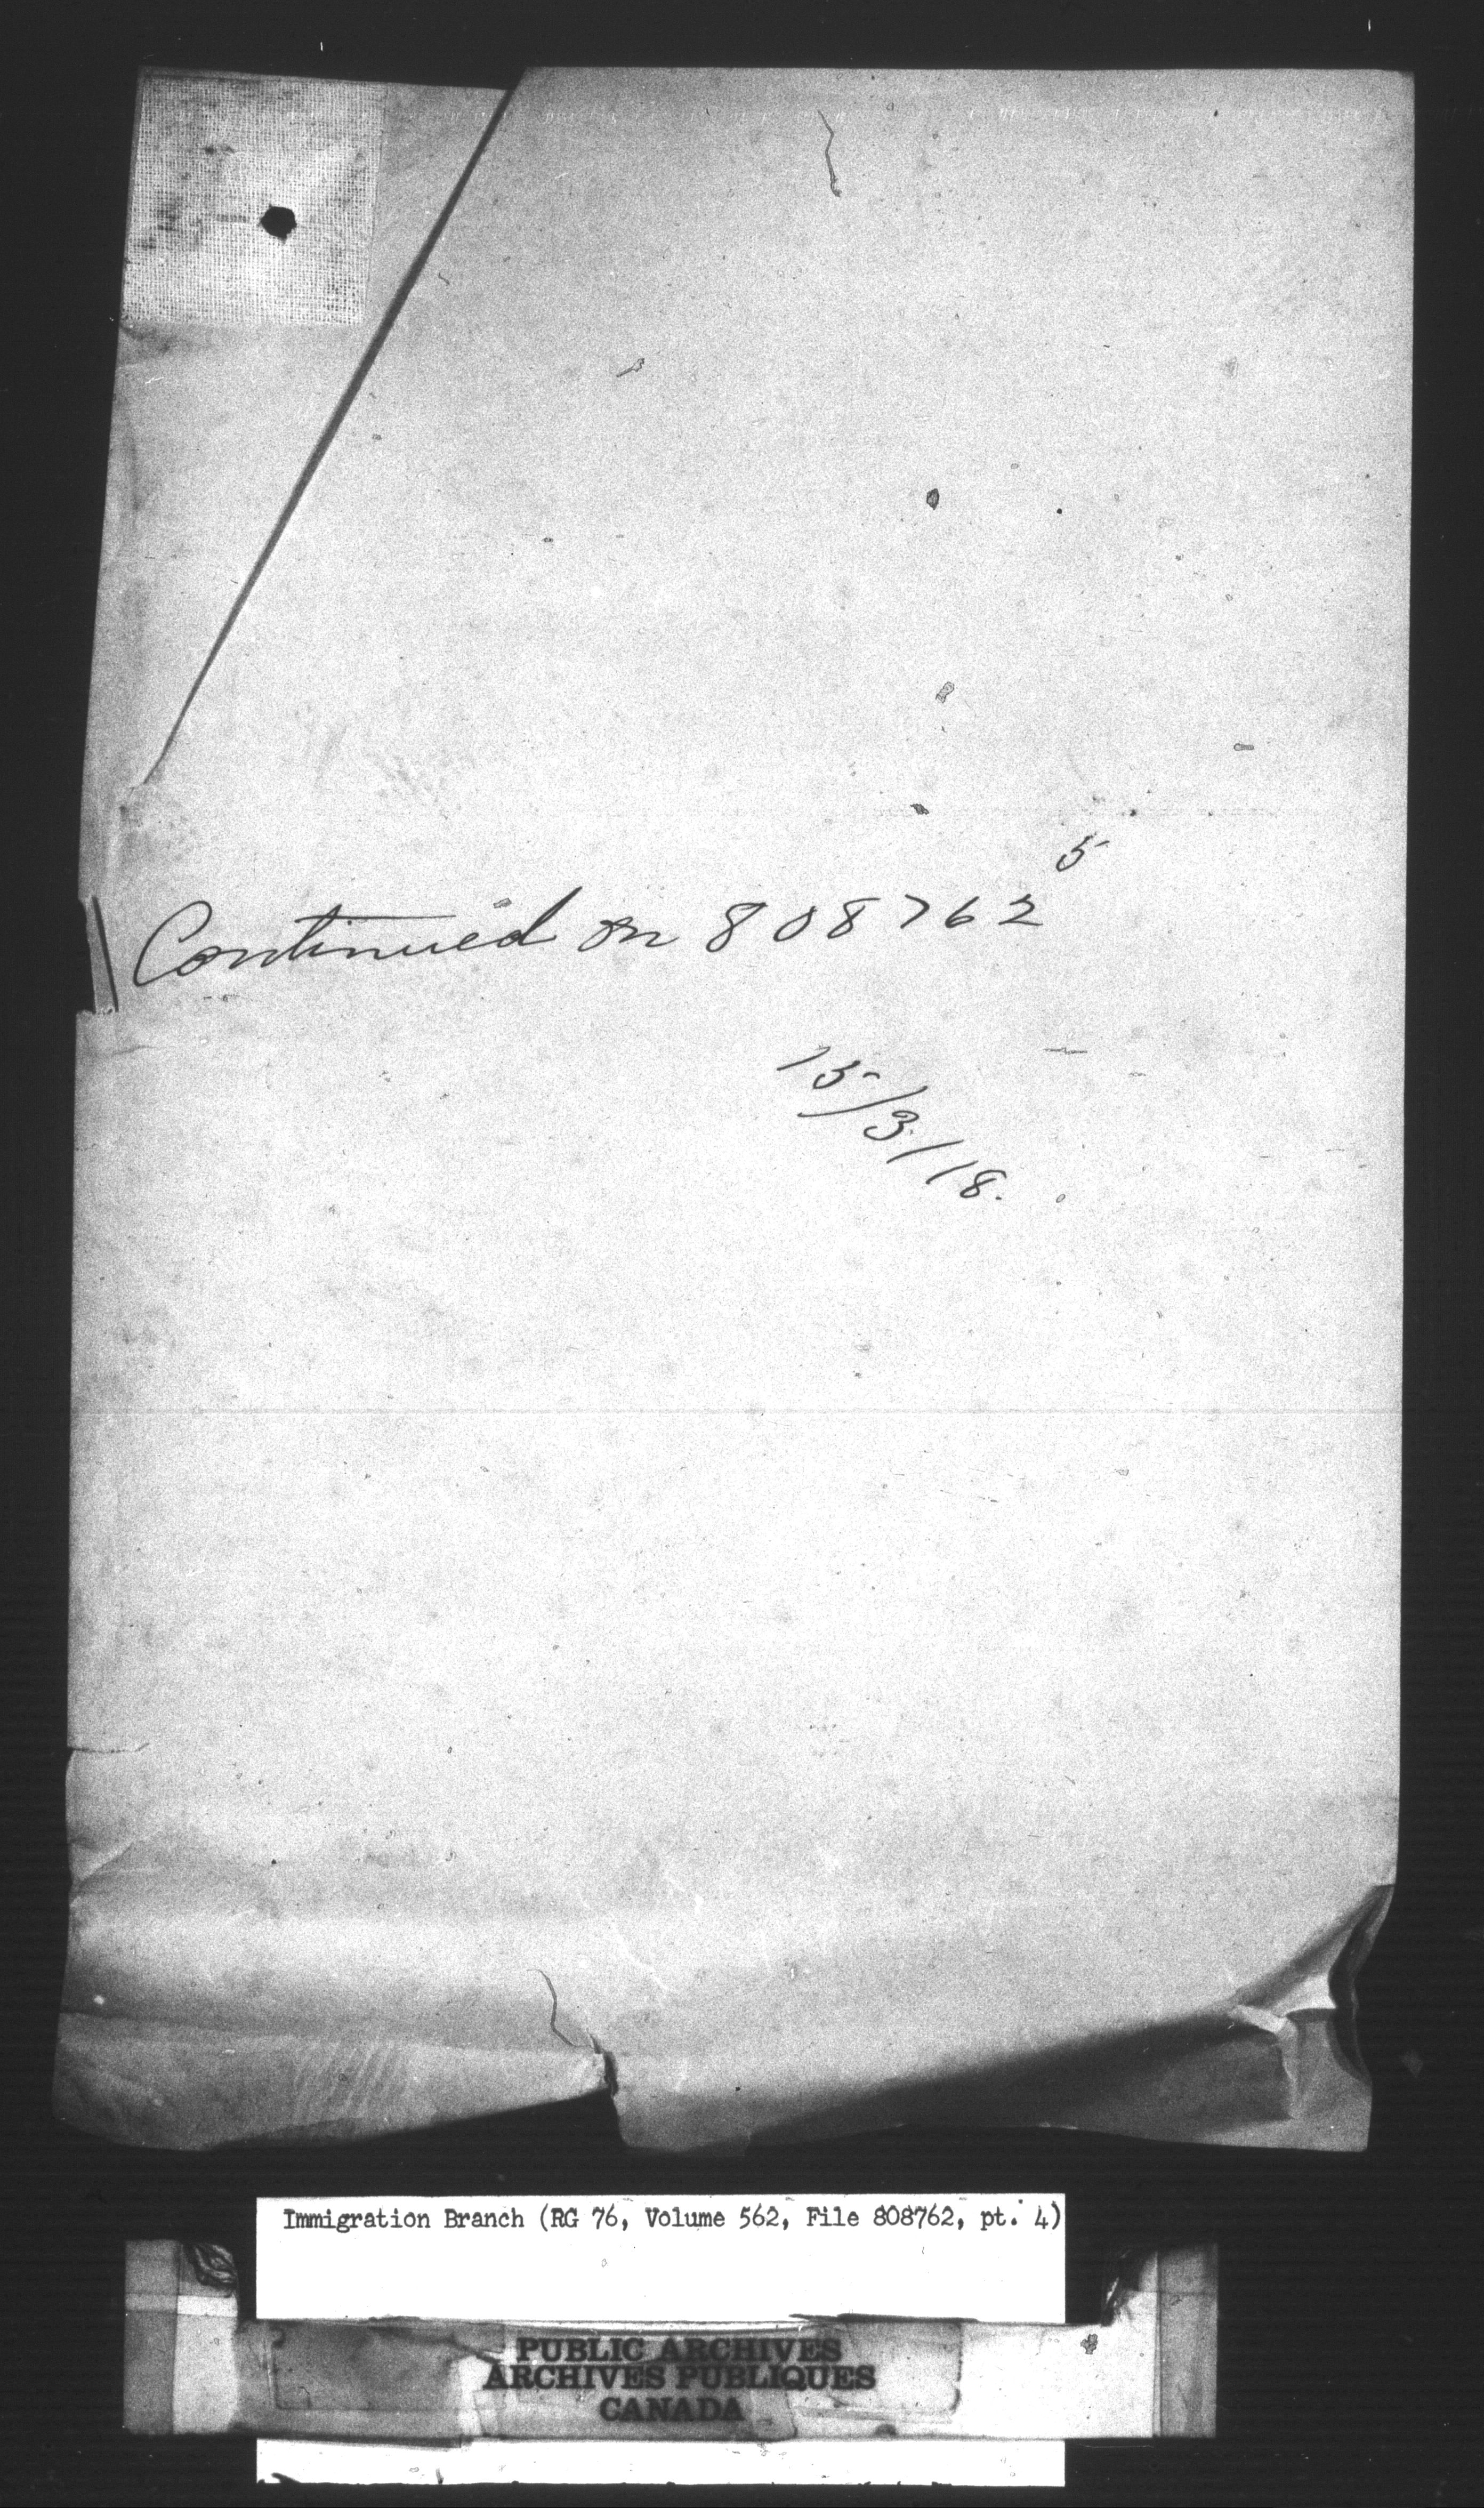 Continued on 808762⁵
15/3/18.
Immigration Branch (RG 76, Volume 562, File 808762, pt. 4)
PUBLIC ARCHIVES
ARCHIVES PUBLIQUES
CANADA